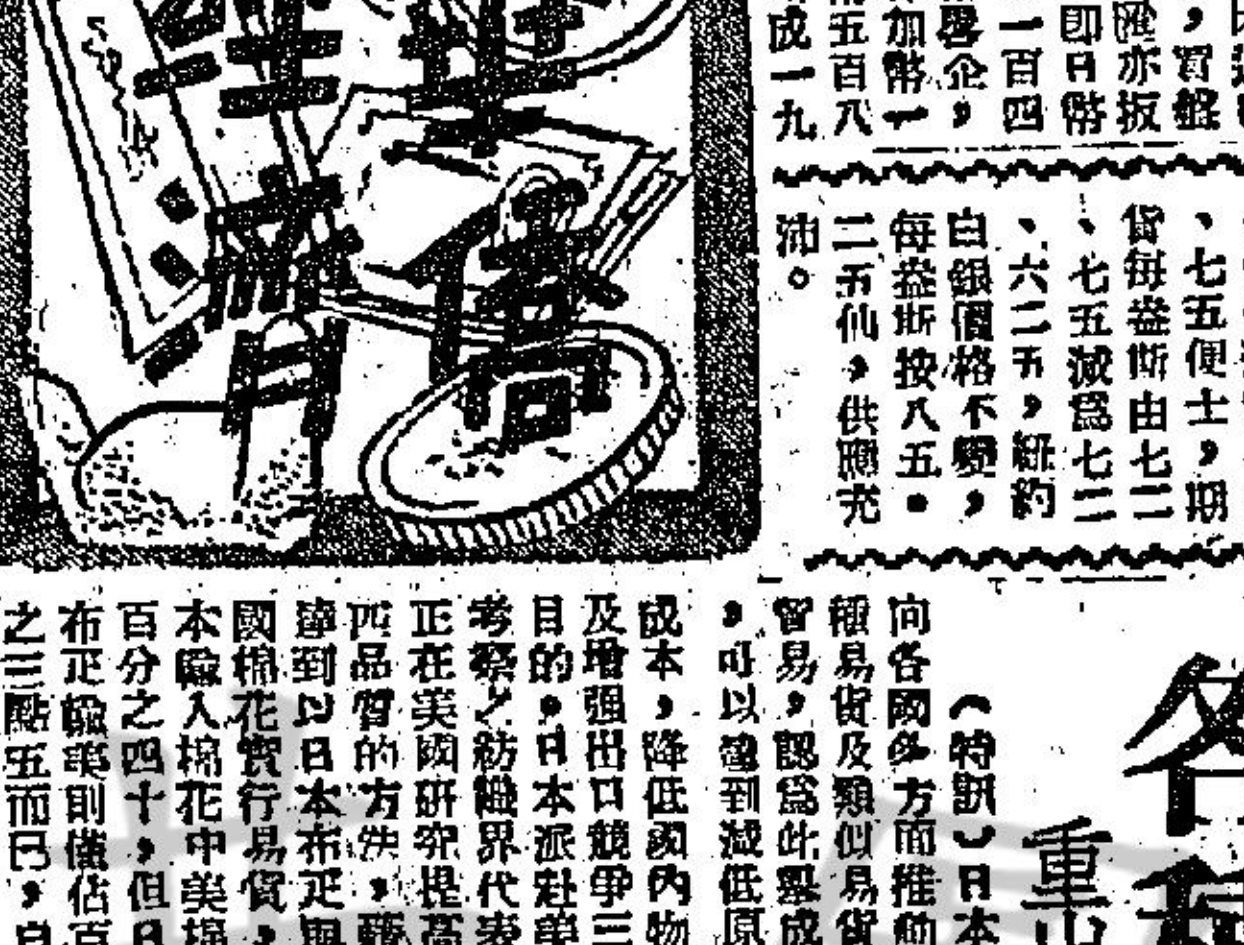 ，實盤
匯亦扳
即日幣
一百四
企，
加幣一
五百八
成一九
、七五便士，期
貨每盎斯由七二
、七五減爲七二
、六二五，紐約
白銀價格不變，
每盎斯按八五．
二五仙，供應充
沛。
僑
濟
各
重
（特訊）日本
向各國多方面推動
種易貨及類似易貨
貿易，認爲此舉成
，可以達到減低原
成本，降低國內物
及增强出口競爭三
目的，日本派赴美
考察之紡織界代表
正在美國研究提高
品質的方法，藉
達到以日本布疋與
國棉花實行易貨，
本輸入棉花中美棉
百分之四十，但日
布疋輸美則僅佔百
之三點五而已，自